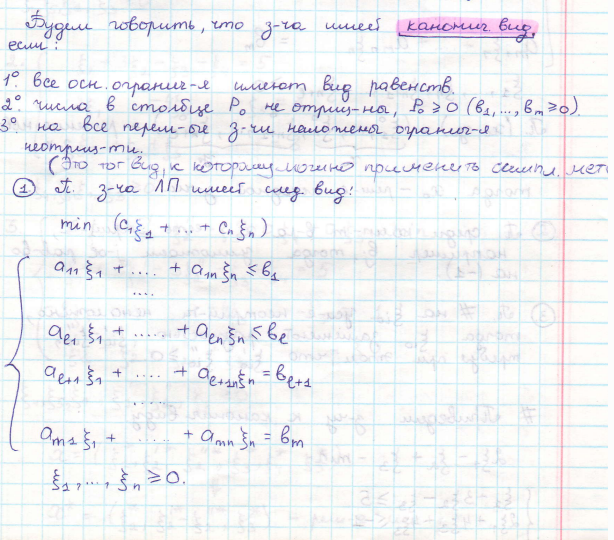 Будем говорить, что з-ча имеет канонич. вид,
если:
1° все осн. огранич-я имеют вид равенств.
2° числа в столбце P₀ не отриц-ны, P₀ ≥ 0 (в₁,...,вm ≥ 0).
3° на все перем-ые з-чи наложены огранич-я
неотриц-ти.
(Это тот вид, к которому можно применить симпл. мет
① П. з-ча ЛП имеет след. вид:
min (c₁ξ₁ + ... + cnξn)
a₁₁ ξ₁ + .... + a₁n ξn ≤ в₁
....
aℓ₁ ξ₁ + ..... + aℓn ξn ≤ вℓ
aℓ+1 ξ₁ + .... + aℓ+1n ξn = вℓ+1
.....
am1 ξ₁ + ..... + amn ξn = вm
ξ₁, ..., ξn ≥ 0.